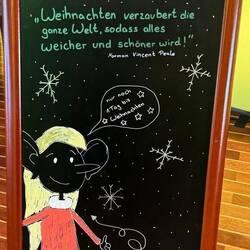 „Weihnachten verzaubert die
ganze Welt, sodass alles
weicher und schöner wird!"
Norman Vincent Peale
nur noch
1 Tag bis
Weihnachten